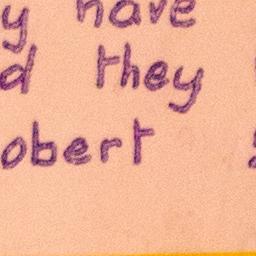 y have
d they
obert